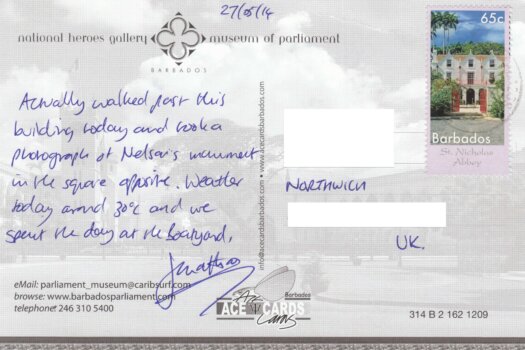 27/05/14
national heroes gallery museum of parliament
BARBADOS
Actually walked past this
building today and took a
photograph of Nelson's monument
in the square opposite. Weather
today around 30°c and we
spent the day at the Boatyard,
Jonathan
eMail: parliament_museum@caribsurf.com
browse: www.barbadosparliament.com
telephone: 246 310 5400
info@acecardsbarbados.com • www.acecardsbarbados.com
65c
Barbados
St. Nicholas
Abbey
NORTHWICH
UK.
Ace Cards
Barbados
ACE CARDS
314 B 2 162 1209